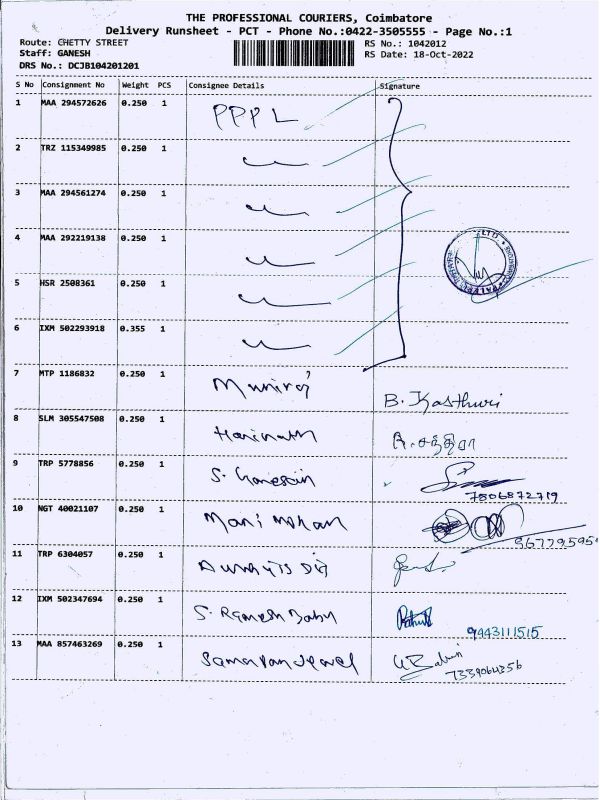 THE PROFESSIONAL COURIERS, Coimbatore
Delivery Runsheet - PCT - Phone No.:0422-3505555 - Page No.:1
Route: CHETTY STREET RS No.: 1042012
Staff: GANESH RS Date: 18-Oct-2022
DRS No.: DCJB104201201
S No Consignment No Weight PCS Consignee Details Signature
1 MAA 294572626 0.250 1 PPPL
2 TRZ 115349985 0.250 1
3 MAA 294561274 0.250 1
4 MAA 292219138 0.250 1
5 HSR 2508361 0.250 1
6 IXM 502293918 0.355 1
7 MTP 1186832 0.250 1 Muniraj B. Kasthuri
8 SLM 305547508 0.250 1 Harinath
9 TRP 5778856 0.250 1 S. Ganesan
7806872719
10 NGT 40021107 0.250 1 Mani Mohan
11 TRP 6304057 0.250 1
12 IXM 502347694 0.250 1 S. Ramesh Babu
9443111515
13 MAA 857463269 0.250 1
7339064356